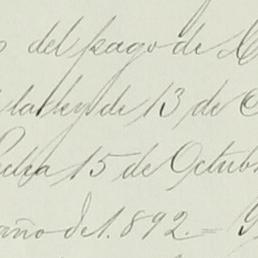 del pago de
la ley de 13 de
fecha 15 de Octub
año de 1.892.=